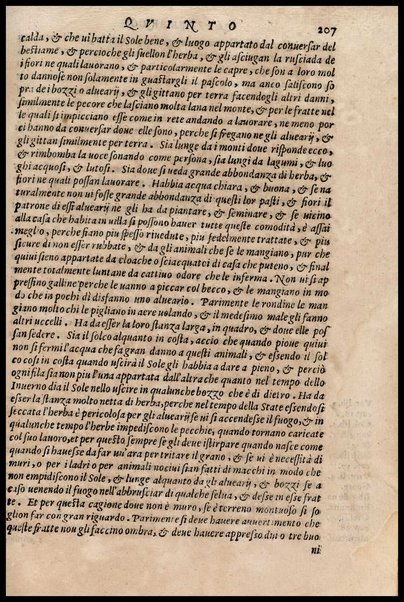 QVINTO 207
calda, & che ui batta il Sole bene, & luogo appartato dal conuersar del
bestiame, & percioche gli suellon l'herba, & gli asciugan la rusciada de
i fiori ne quali lauorano, & particolarmente le capre, che son a loro mol
to dannose non solamente in guastargli il pascolo, ma anco saliscono so
pra dei bozzi o aluearij, & gli gittan per terra facendogli altri danni,
similmente le pecore che lasciano molta lana nel monte, & per le fratte nel
le quali s'impicciano esse come in rete andando a lauorare, ne meno por
ci hanno da conuersar doue elle sono, perche si fregano ne gli aluearij, &
gli gittan similmente per terra. Sia lunge da i monti doue risponde ecco,
& rimbomba la uoce sonando come persona, sia lungi da lagumi, & luo
ghi acquosi, & lutosi. Sia doue si ueda grande abbondanza di herba, &
fiori ne quali possan lauorare. Habbia acqua chiara, & buona, & se na
turalmente non ui fosse grande abbondanza di questi lor pasti, & fiori il
patrone di essi aluearij ne gli ha da piantare, & seminare, & se uicino
alla casa che habita in uilla si possono hauer tutte queste comodità, è assai
meglio, perche siano piu spesso riuedute, piu fedelmente trattate, & piu
sicure di non esser rubbate, & da gli animali che se le mangiano, pur che
quiui sieno appartate da cloache o sciacquatoi di casa che puteno, & final
mente totalmente luntane da cattiuo odore che le inferma. Non ui si ap
pressino galline perche le uanno a piccar col becco, & le mangiano in mo
do che in pochi dì disfanno uno alueario. Parimente le rondine le man
giano molto chi le pigliano in aere uolando, & il medesimo male gli fanno
altri uccelli. Ha da esser la loro stanza larga, in quadro, & doue elle pos
san sedere. Sia il solco alquanto in costa, accio che quando pioue quiui
non si fermi l'acqua che fa gran danno a questi animali, & essendo il sol
co cosi in costa quando uscirà il Sole gli habbia a dare a pieno, & perciò
ogni fila sia non piu l'una appartata dall'altra che quanto nel tempo dello
Inuerno dia il Sole nello uscire in qualunche bozzo che è di dietro. Ha da
esser la stanza molto netta di herba, perche nel tempo della State essendo se
seccata l'herba è pericolosa per gli aluearij se ui si accendesse il fuoco, & in
qualunche tempo l'herbe impediscono le pecchie, quando tornano caricate
col suo lauoro, et per questo sempre se gli deue istirpare quando nasce come
quando si hauesse da far un'ara per tritare il grano, & se ui è necessità di
muri, o per i ladri o per animali nociui sian fatti di macchi in modo che
non empidiscono il Sole, & lunge alquanto da gli aluearij, & bozzi se a
caso uenendo il fuoco nell'abbrusciar di qualche selua, & desse in esse frat
te. Et per questa cagione doue non è muro, se è terreno montuoso si so
glion far con gran riguardo. Parimente si deue hauere auuertimento che
queste fratte non gli faccino ombra, & deue hauere appresso dui o tre buo
ni